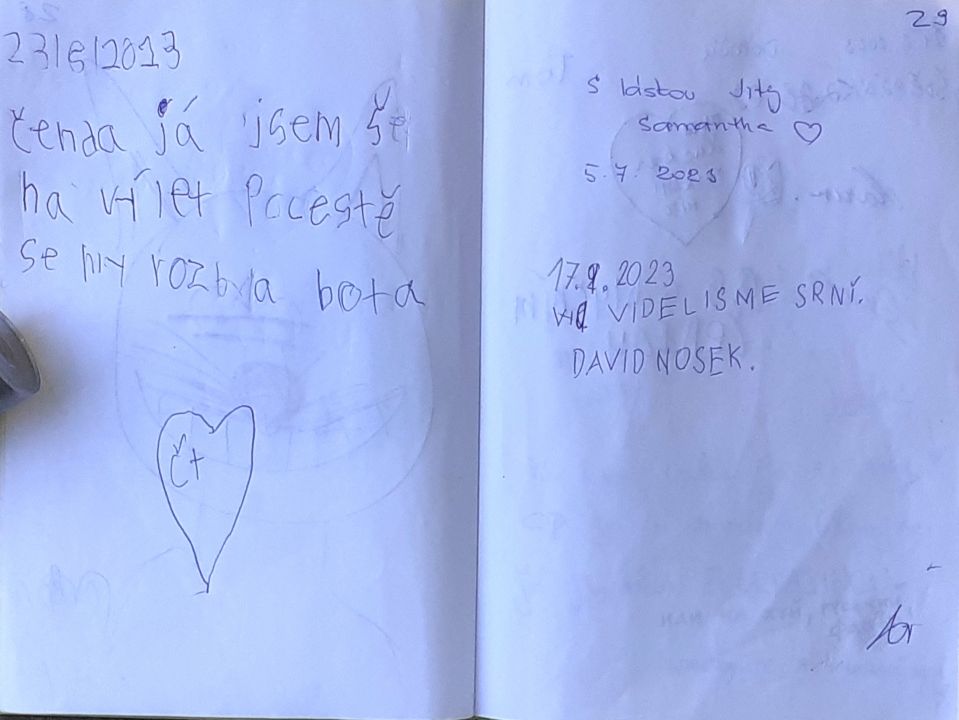 23/6/2013
čenda já jsem še
na vílet Pocestě
se my rozbyla bota
č+
29
S láskou Jity
Samantha ♡
5. 7. 2023
17.9.2023
VIDELISME SRNÍ.
DAVID NOSEK.